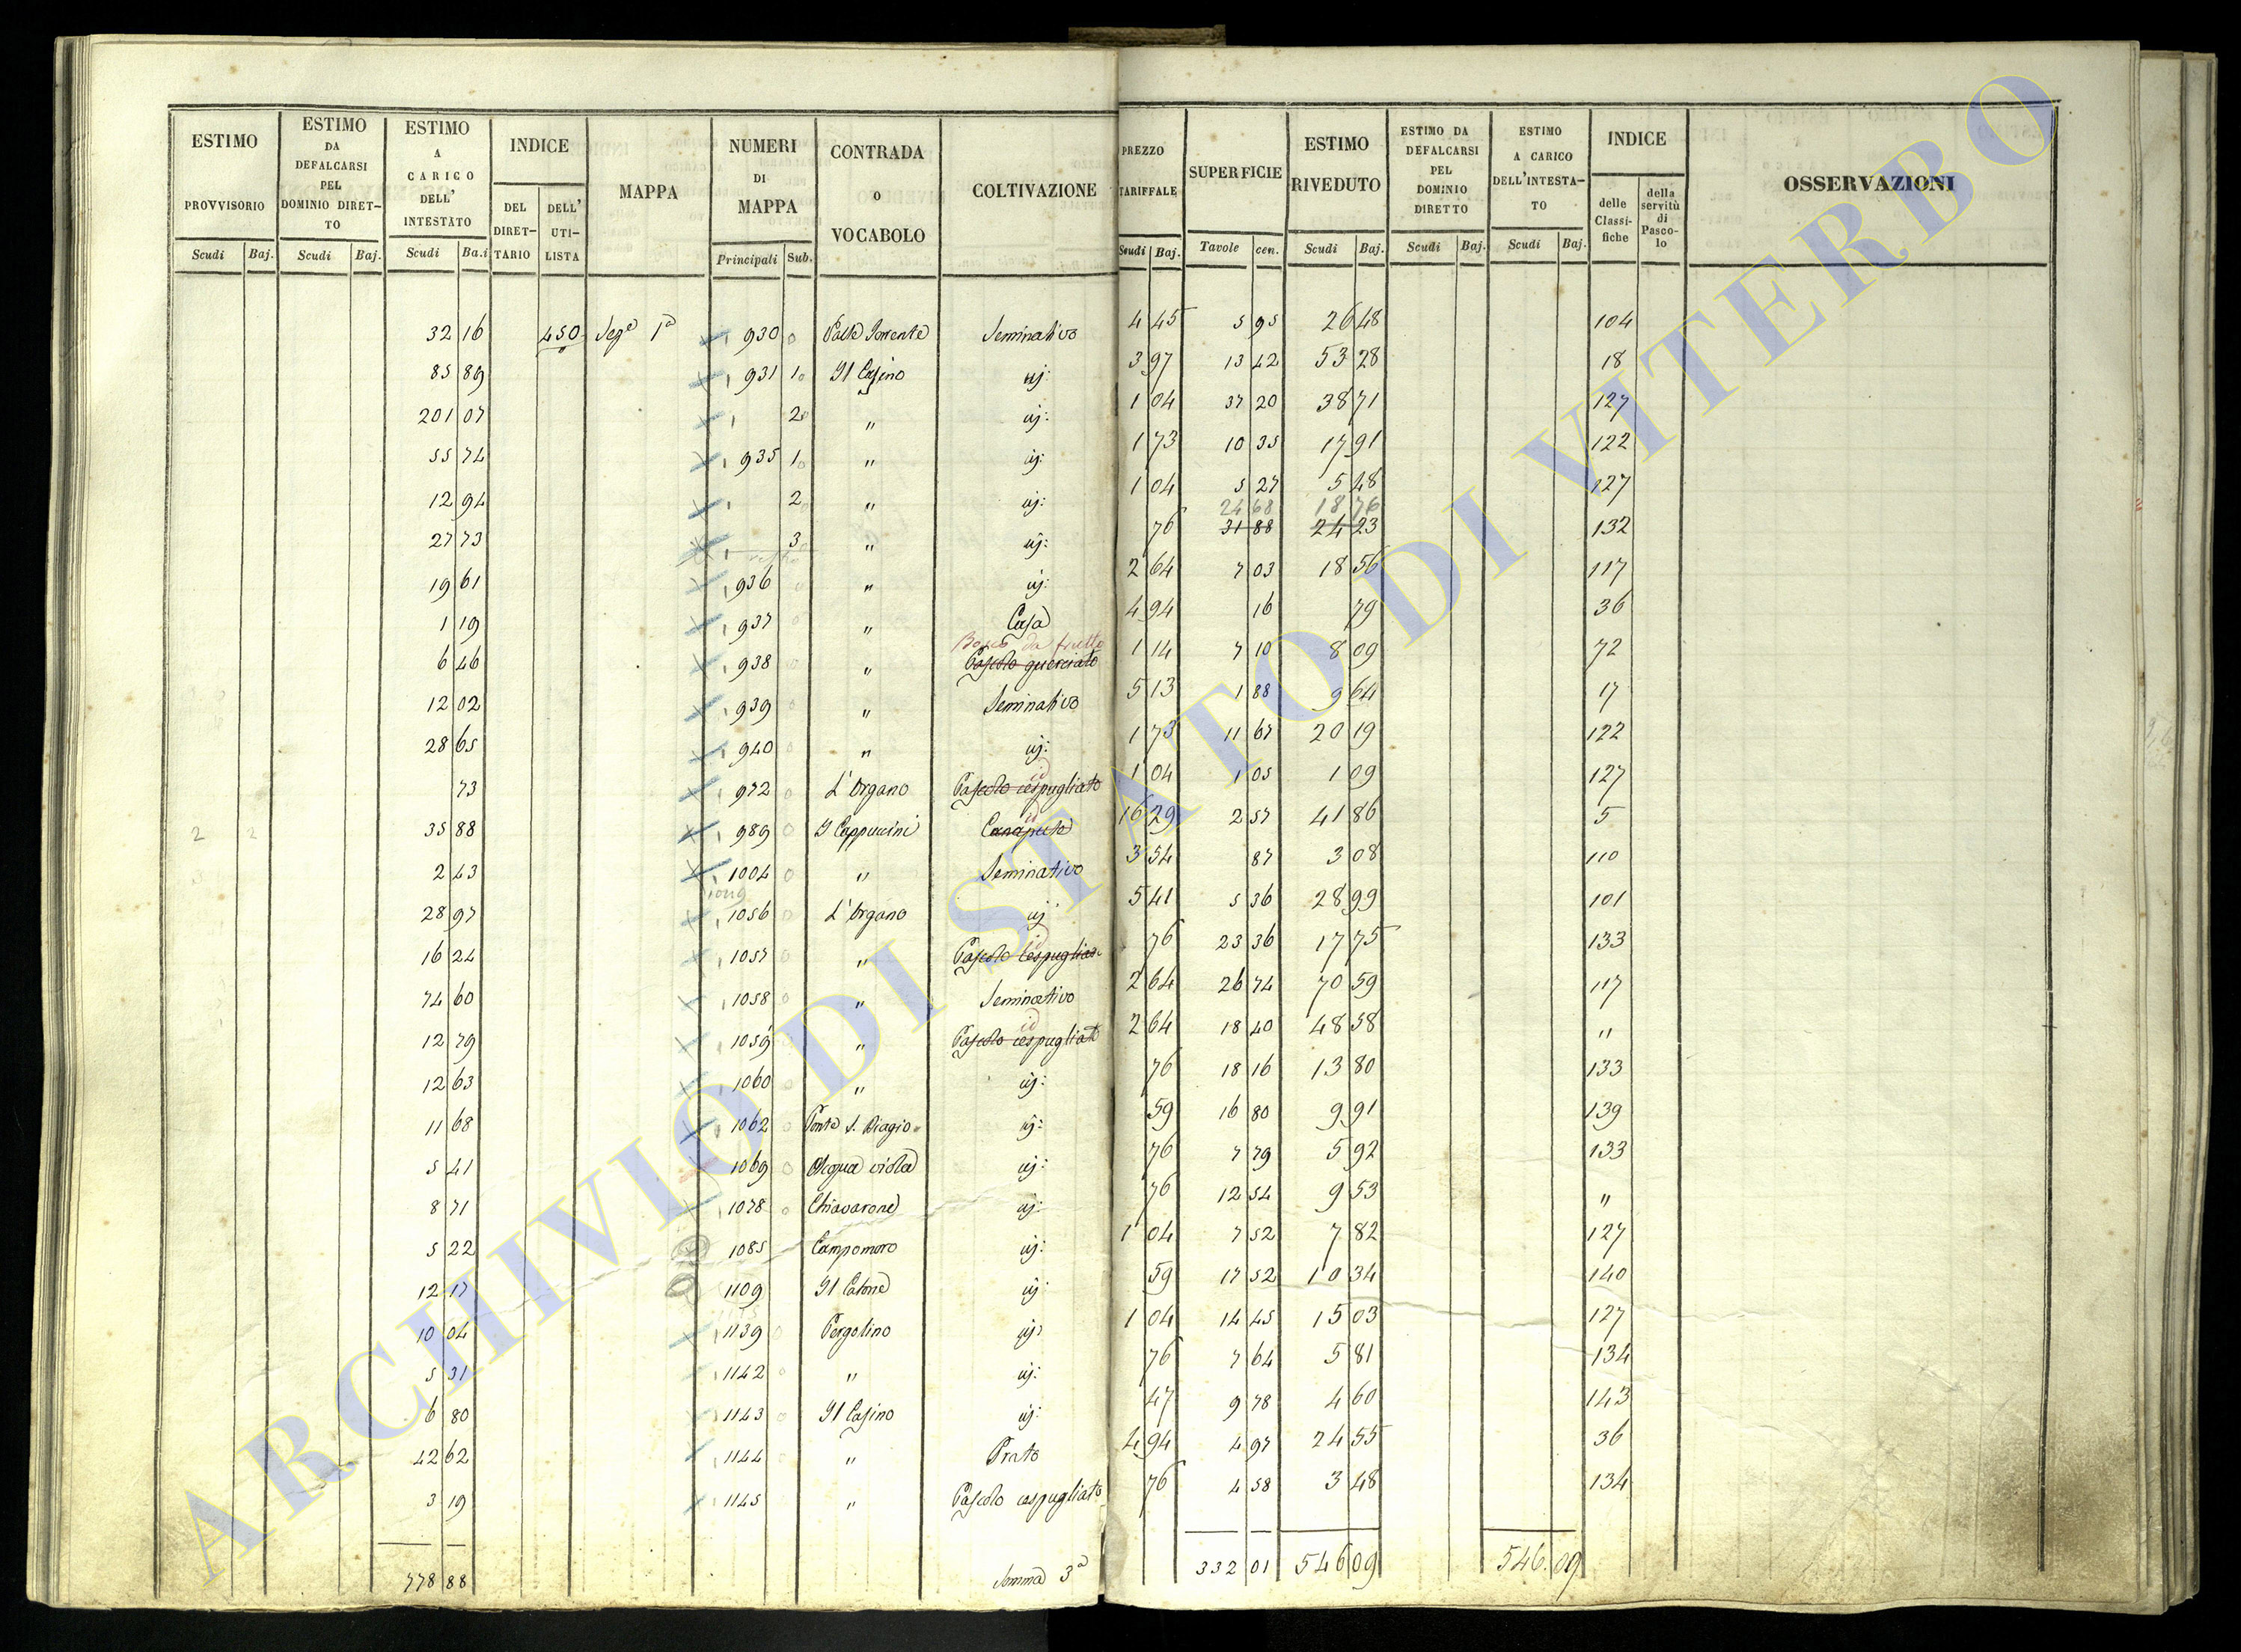 ESTIMO PROVVISORIO Scudi Baj.
ESTIMO DA DEFALCARSI PEL DOMINIO DIRET-TO Scudi Baj.
ESTIMO A CARICO DELL' INTESTATO Scudi Ba.i
INDICE DEL DIRET-TARIO DELL' UTI-LISTA
MAPPA
NUMERI DI MAPPA Principali Sub.
CONTRADA o VOCABOLO
COLTIVAZIONE
PREZZO TARIFFALE Scudi Baj.
SUPERFICIE Tavole cen.
ESTIMO RIVEDUTO Scudi Baj.
ESTIMO DA DEFALCARSI PEL DOMINIO DIRETTO Scudi Baj.
ESTIMO A CARICO DELL'INTESTA-TO Scudi Baj.
INDICE delle Classi-fiche della servitù di Pasco-lo
OSSERVAZIONI
32 16 450 Sez.e 1a 930 0 Seminativo 4 45 5 95 26 48 104
85 89 931 1 0 Il Casino uj: 3 97 13 42 53 28 18
201 07 2 0 " uj: 1 04 37 20 38 71 127
55 74 935 1 0 " uj: 1 73 10 35 17 91 122
12 94 2 0 " uj: 1 04 5 27 5 48 127
24 68 18 76
27 73 3 " uj: 76 31 88 24 23 132
19 61 936 0 " uj: 2 64 7 03 18 56 117
1 19 937 0 " Casa 4 94 16 79 36
Bosco da frutto
6 46 938 0 " Pascolo querciato 1 14 7 10 8 09 72
12 02 939 0 " Seminativo 5 13 1 88 9 64 17
28 65 940 0 " uj: 1 73 11 67 20 19 122
id
73 972 0 L'Organo Pascolo cespugliato 1 04 1 05 1 09 127
id
2 2 35 88 989 0 I Cappuccini Canapule 16 29 2 57 41 86 5
2 43 1004 0 " Seminativo 3 54 87 3 08 110
28 97 1056 0 L'Organo uj 5 41 5 36 28 99 101
id
16 24 1057 0 " Pascolo cespuglia 76 23 36 17 75 133
74 60 1058 0 " Seminativo 2 64 26 74 70 59 117
id
12 79 1059 " Pascolo cespugliato 2 64 18 40 48 58 "
12 63 1060 0 " uj: 76 18 16 13 80 133
11 68 1062 0 Ponte S. Biagio uj: 59 16 80 9 91 139
5 41 1069 0 Acqua viola uj: 76 7 79 5 92 133
8 71 1078 0 Chiavarone uj: 76 12 54 9 53 "
5 22 1085 Campomoro uj: 1 04 7 52 7 82 127
12 17 1109 uj: 59 17 52 10 34 140
10 04 1139 0 Pergolino uj: 1 04 14 45 15 03 127
5 31 1142 0 " uj: 76 7 64 5 81 134
6 80 1143 0 Il Casino uj: 47 9 78 4 60 143
42 62 1144 " Prato 4 94 4 97 24 55 36
3 19 1145 " Pascolo cespugliato 76 4 58 3 48 134
778 88 Somma 3a 332 01 546 09 546. 09
ARCHIVIO DI STATO DI VITERBO